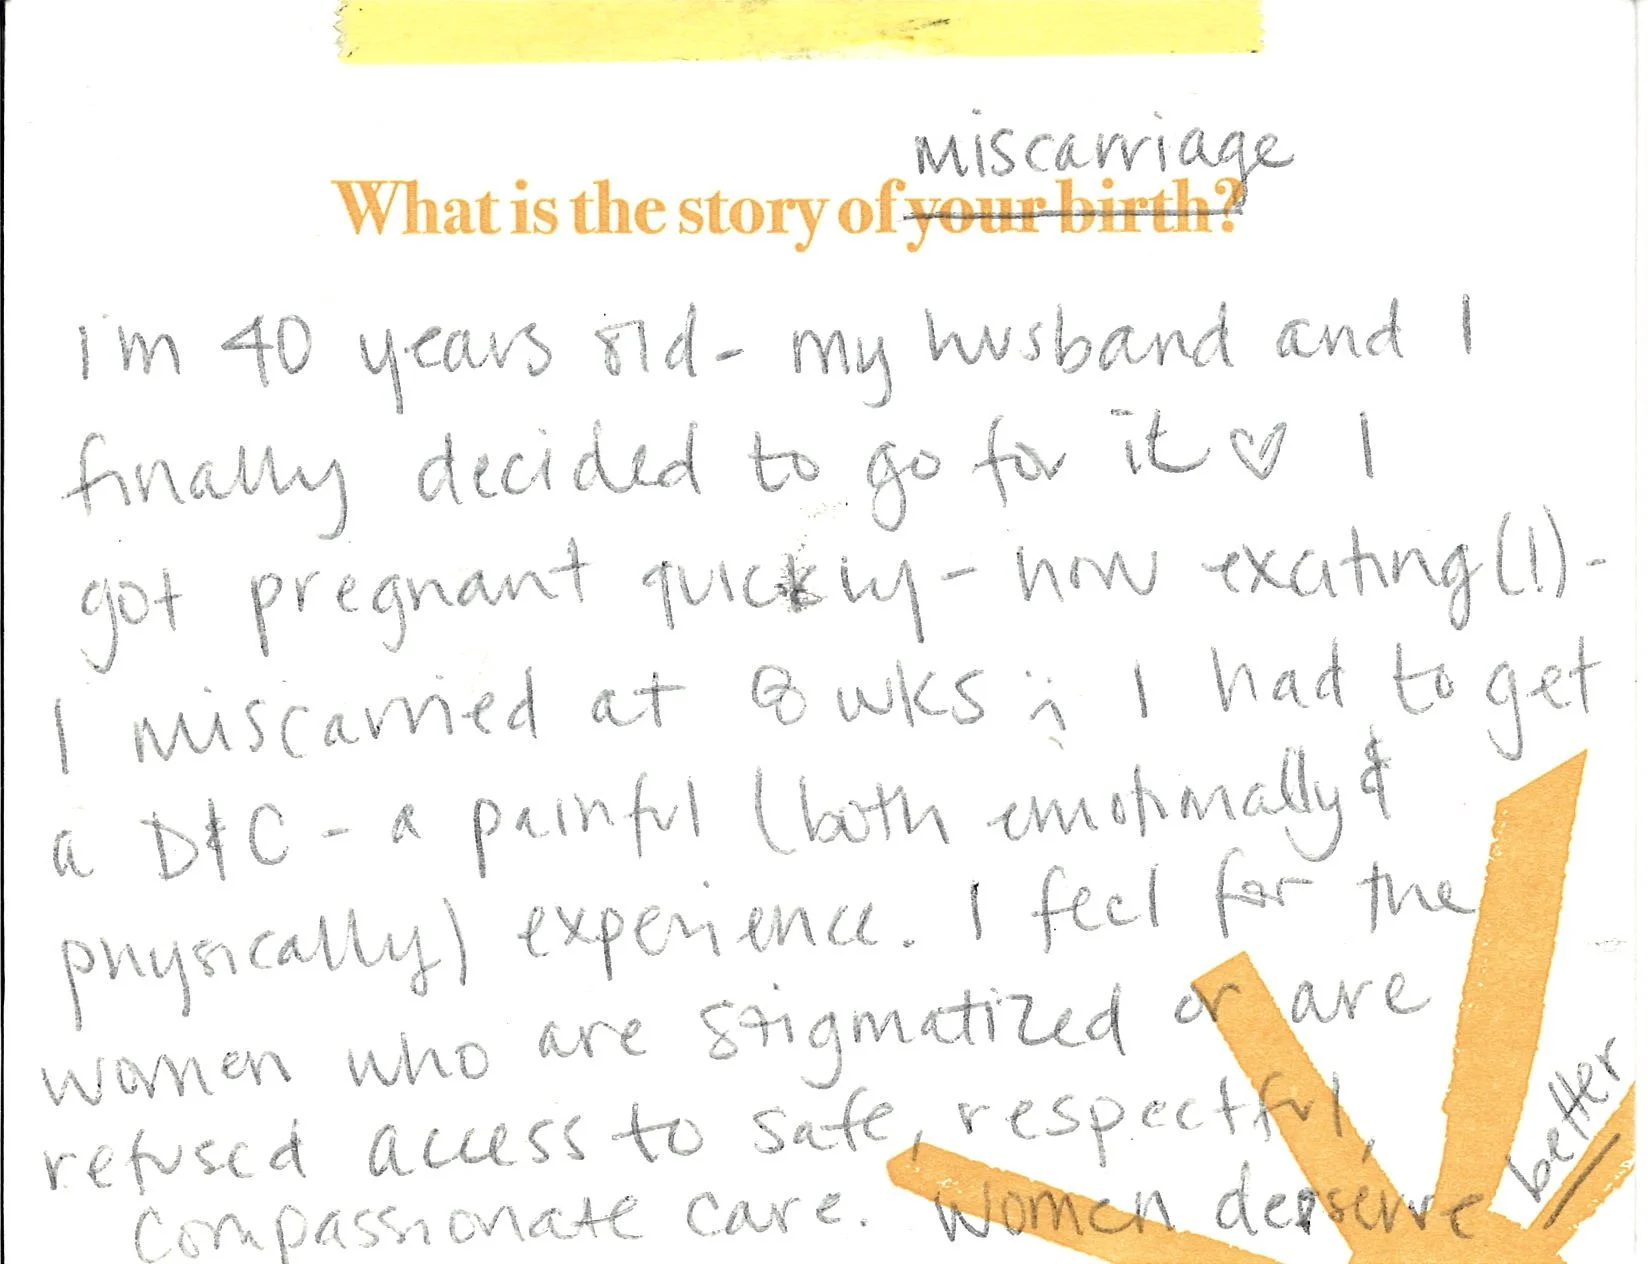 miscarriage
What is the story of your birth?
I'm 40 years old - my husband and I
finally decided to go for it ♡ I
got pregnant quickly - how exciting (!) -
I miscarried at 8 wks :( I had to get
a D&C - a painful (both emotionally &
physically) experience. I feel for the
women who are stigmatized or are
refused access to safe, respectful,
compassionate care. Women deserve
better